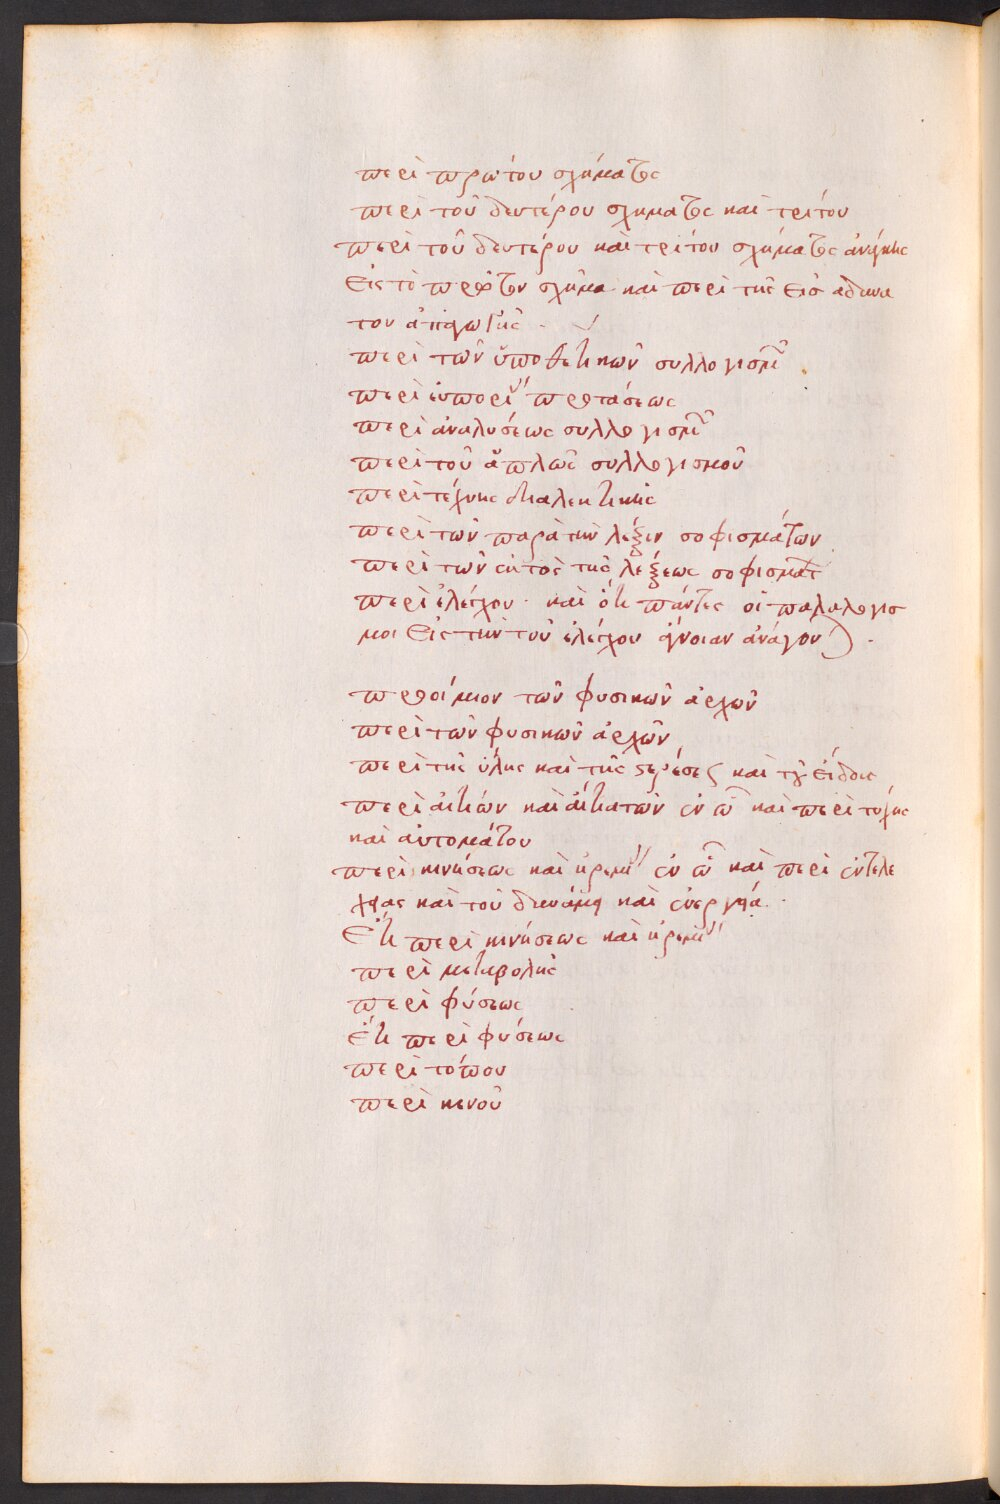 περὶ πρώτου σχήματος
περὶ τοῦ δευτέρου σχήματος καὶ τρίτου
περὶ τοῦ δευτέρου καὶ τρίτου σχήματος
εἰς τὸ πρῶτον σχῆμα καὶ περὶ τῆς εἰς αδυνα
τον ἀπαγωγῆς
περὶ τῶν ὑποθετικῶν συλλογισμῶν
περὶ εὐπορίας προτάσεως
περὶ ἀναλύσεως συλλογισμῶν
περὶ τοῦ ἁπλῶς συλλογισμοῦ
περὶ τέχνης διαλεκτικῆς
περὶ τῶν παρὰ τὴν λέξιν σοφισμάτων
περὶ τῶν ἐκτὸς τῆς λέξεως σοφισμάτων
περὶ ἐλέγχου · καὶ ὅτι πάντες οἱ παραλογισ
μοι εἰς τὴν τοῦ ἐλέγχου ἄγνοιαν ἀνάγονται ·
προοίμιον τῶν φυσικῶν ἀρχῶν
περὶ τῶν φυσικῶν ἀρχῶν
περὶ τῆς ὕλης καὶ τῆς στερήσεως καὶ τοῦ εἴδους
περὶ αἰτιῶν καὶ αἰτιατῶν ἐν ὧ καὶ περὶ τύχης
καὶ αὐτομάτου
περὶ κινήσεως καὶ ἠρεμίας ἐν ὧ καὶ περὶ ἐντελε
χείας καὶ τοῦ δυνάμει καὶ ἐνεργείᾳ ·
ἔτι περὶ κινήσεως καὶ ἠρεμίας
περὶ μεταβολῆς
περὶ φύσεως
ἔτι περὶ φύσεως
περὶ τόπου
περὶ κενοῦ